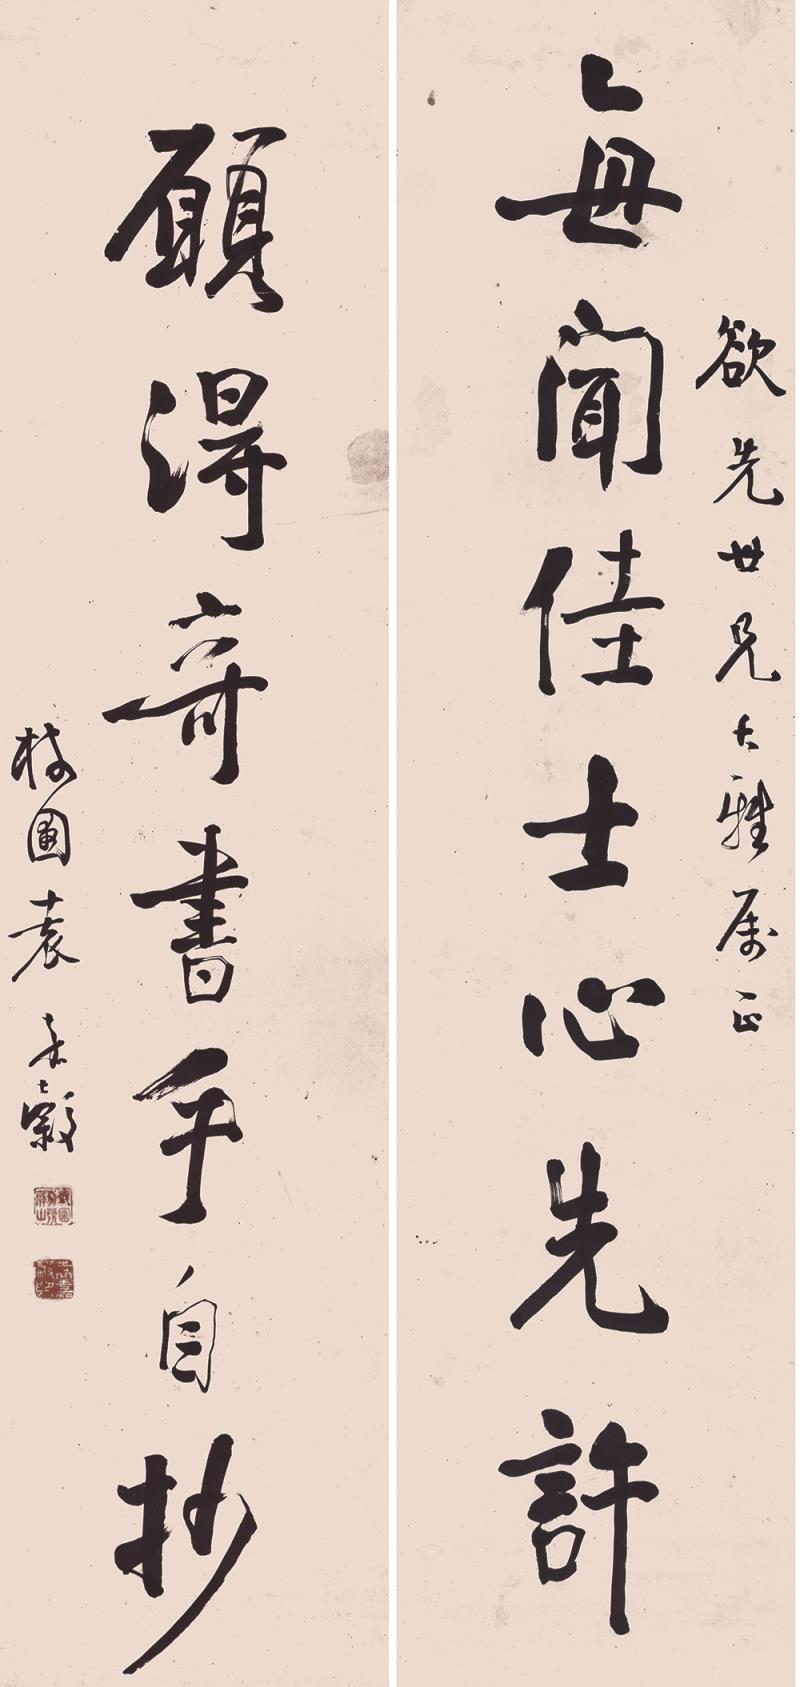 欲先世兄大雅属正
每聞佳士心先許
願得奇書手自抄
樹圃袁嘉穀